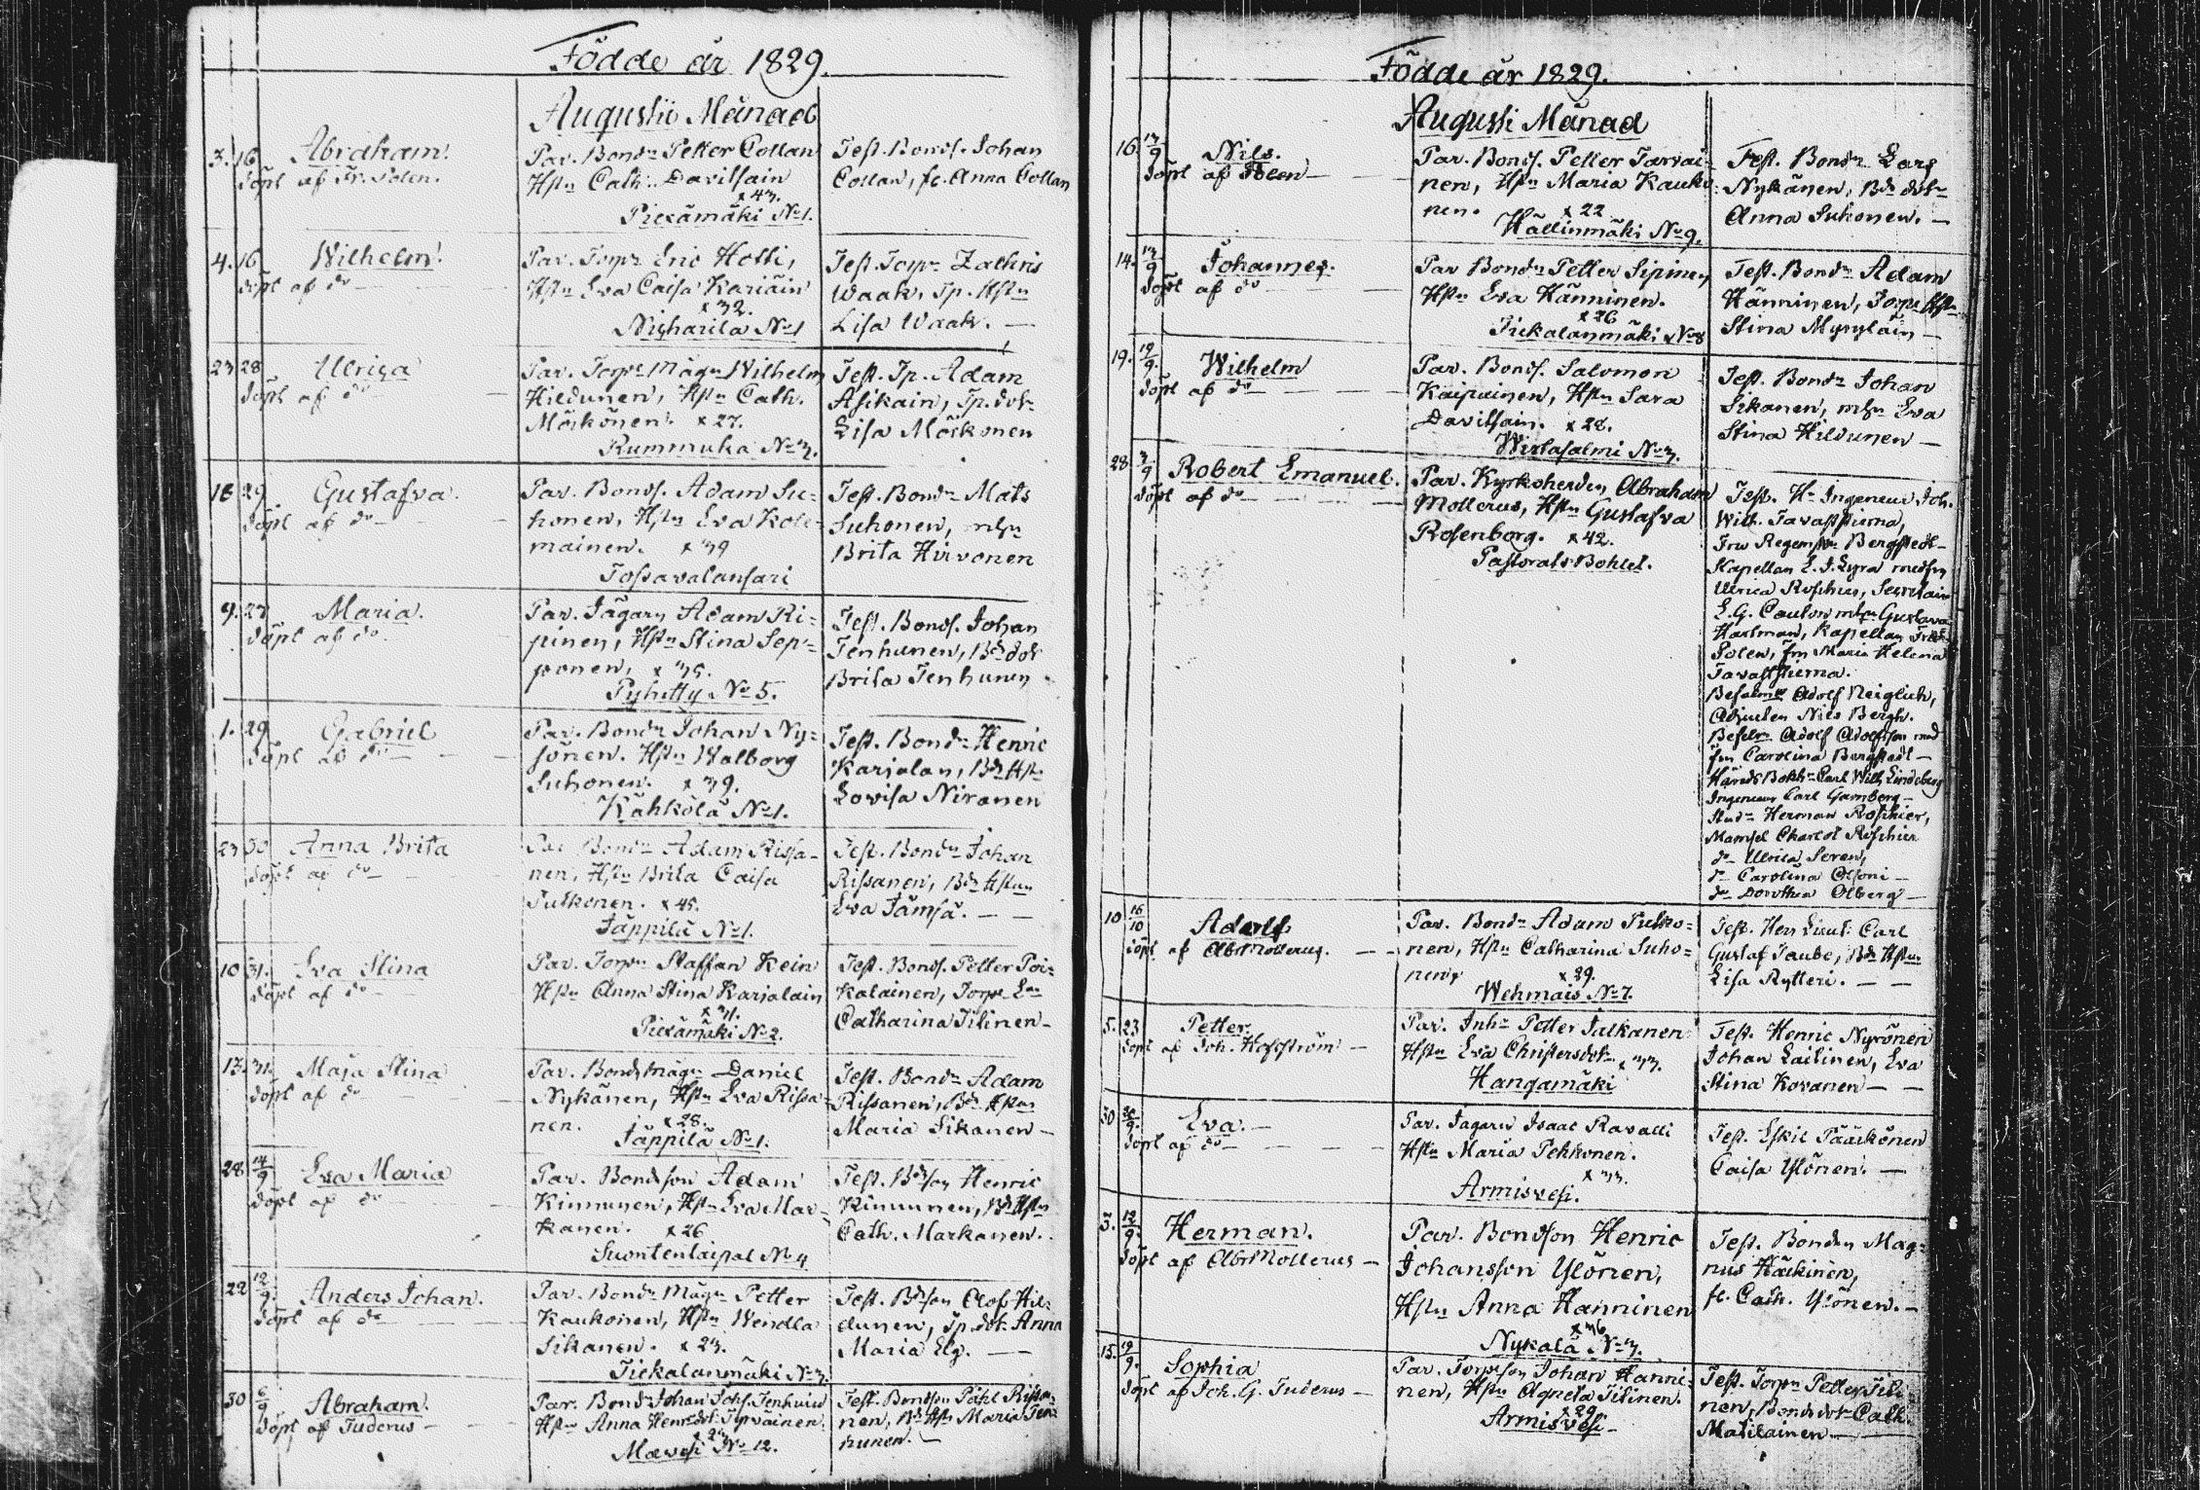 Födde år 1829.
Augusti Månad
3. 16 Abraham.
döpt af Fr. Polen.
Par. Bondn Petter Collan
Hstn Cath. Davitsain
x 43.
Piexämäki No 1.
Test. Bonds. Johan
Collan, fl. Anna Collan
4. 16 Wilhelm.
döpt af do
Par. Torpn Eric Hotti,
Hstn Eva Caisa Kariäin
x 32.
Nisharila No 1
Test. Torpn Zachris
Waak, Tp. Hstn
Lisa Waak.
23 28 Ulrica
döpt af do
Par. Torps Mågn Wilhelm
Hildunen, Hstn Cath.
Möskönen. x 27.
Rummuka No 3.
Test. Tp. Adam
Asikain, Tp. dotr
Lisa Möskonen
18 29 Gustafva.
döpt af do
Par. Bonds. Adam Su=
honen, Hstn Eva Kole=
mainen. x 39
Tossavalansari
Test. Bondn Mats
Suhonen, mhu
Brita Hirvonen
9. 27 Maria.
döpt af do
Par. Jägarn Adam Ri=
pinen, Hstn Stina Sep=
ponen, x 35.
Pyhitty No 5.
Test. Bonds. Johan
Tenhunen, Bd dotr
Brita Tenhunen
1. 29 Gabriel
döpt af do
Par. Bondn Johan Ny=
sönen. Hstn Walborg
Suhonen. x 39.
Kähkölä No 1.
Test. Bondn Henric
Karjalan, Bd Hstn
Lovisa Niranen
23 30 Anna Brita
döpt af do
Par. Bondn Adam Rissa-
nen, Hstn Brita Caisa
Pulkonen. x 45.
Jäppilä No 1.
Test. Bondn Johan
Rissanen, Bd Hstn
Eva Jämsä.
10 31. Eva Stina
döpt af do
Par. Torpn Staffan Kein
Hstn Anna Stina Karjalain
x 31.
Piexämäki No 2.
Test. Bonds. Petter Poi=
kalainen, Torps En
Catharina Tilinen-
17. 31. Maja Stina
döpt af do
Par. Bondsmågn Daniel
Nykänen, Hstn Eva Rissa=
nen. x 28.
Jäppilä No 1.
Test. Bondn Adam
Rissanen, Bd Hstn
Maria Sikanen-
28 14/9 Eva Maria
döpt af do
Par. Bondeson Adam
Kinnunen, Hstn Eva Mar=
kanen. x 26
Suontentaipal No 4
Test. Bdson Henric
Kinnunen, Bd Hstn
Cath. Markanen.
22 12/9. Anders Johan.
döpt af do
Par. Bondn Mågn Petter
Kaukoinen, Hstn Wendla
Sikanen. x 23.
Tiekalanmäki No 3.
Test. Bdson Olof Hil=
dunen, Tp. dotr Anna
Maria Elg.
30 6/9 Abraham.
döpt af Tuderus-
Par. Bondn Johan Johs. Tenhuin
Hstn Anna Henrsdotr Tyrväinen.
Mævesi No 12.
Test. Bondson Påhl Rissa=
nen, Bd Hstn Maria Ten=
hunen.
Födde år 1829.
Augusti Månad
16. 13/9 Nils.
döpt af Polen
Par. Bonds. Petter Tarvai-
nen, Hstn Maria Kauko=
nen. x 22
Hällinmäki No 9.
Test. Bondn Lars
Nykänen, Bd dotr
Anna Suhonen.-
14. 13/9 Johannes.
döpt af do
Par Bondn Petter Sipinen,
Hstn Eva Hänninen.
x 26
Tiekalanmäki No 8
Test. Bondn Adam
Hänninen, Torps Hstn
Stina Myryläin-
19. 19/9. Wilhelm
döpt af do
Par. Bonds. Salomon
Kaipainen, Hstn Sara
Davitsain. x 28.
Wirtasalmi No 3.
Test. Bondn Johan
Sikanen, mhu Eva
Stina Hildunen-
28. 3/9 Robert Emanuel.
döpt af do
Par. Kyrkoherden Abraham
Mollerus, Hstn Gustafva
Rosenborg. x 42.
Pastorals Bohlet.
Test. Hr Ingeneur Joh.
Wilh. Tavaststierna,
Fru Regemn Bergstedt-
Kapellan E. J. Lyra medfru
Ulrica Roschier, Secretairn
E. G. Caulon mhu Gustava
Hartman, Kapellan Fredr
Polen, frn Maria Helena
Tavaststierna.
Befalmn Adolf Neiglick,
Adjucten Nils Bergh.
Befalm Adolf Adolfsson med
frn Carolina Bergstedt-
Härads Bokhn Carl Wilh Lindeberg
Ingeneur Carl Gamberg-
Studn Herman Roschier,
Mamsel Charlot Roschier
do Ulrica Seren,
do Carolina Olsoni-
do Dorothea Olberg-
10 16/10 Adolf
döpt af Abr Mollerus.
Par. Bondn Adam Pulko=
nen, Hstn Catharina Suho=
nen, x 39.
Wehmais No 7.
Test. Herr Lieut. Carl
Gustaf Taube, Bd Hstn
Lisa Rytteri.
5. 23 Petter.
döpt af Joh. Hoffström-
Par. Inhs Petter Jalkanen
Hstn Eva Christersdotr x 33.
Hangamäki
Test. Henric Nyrönen
Johan Lailinen, Eva
Stina Kovanen
30 30/9. Eva.-
döpt af do
Par. Jägarn Isaac Ravalli
Hstn Maria Pekkonen.
x 33.
Armisvesi.
Test. Eskil Pääskönen
Caisa Ylönen.-
3. 12/9. Herman.
döpt af Abr Mollerus-
Par. Bondson Henric
Johansson Ylönen,
Hstn Anna Hänninen
x 36
Nykälä No 3.
Test. Bonden Mag=
nus Häckinen,
fl. Cath. Ylönen.-
15. 19/9. Sophia
döpt af Joh. G. Tuderus-
Par. Torpeson Johan Hänni=
nen, Hstn Agneta Tilinen.
x 29
Armisvesi-
Test. Torpn Petter Tili=
nen, Bondsdotr Cath.
Matilainen-